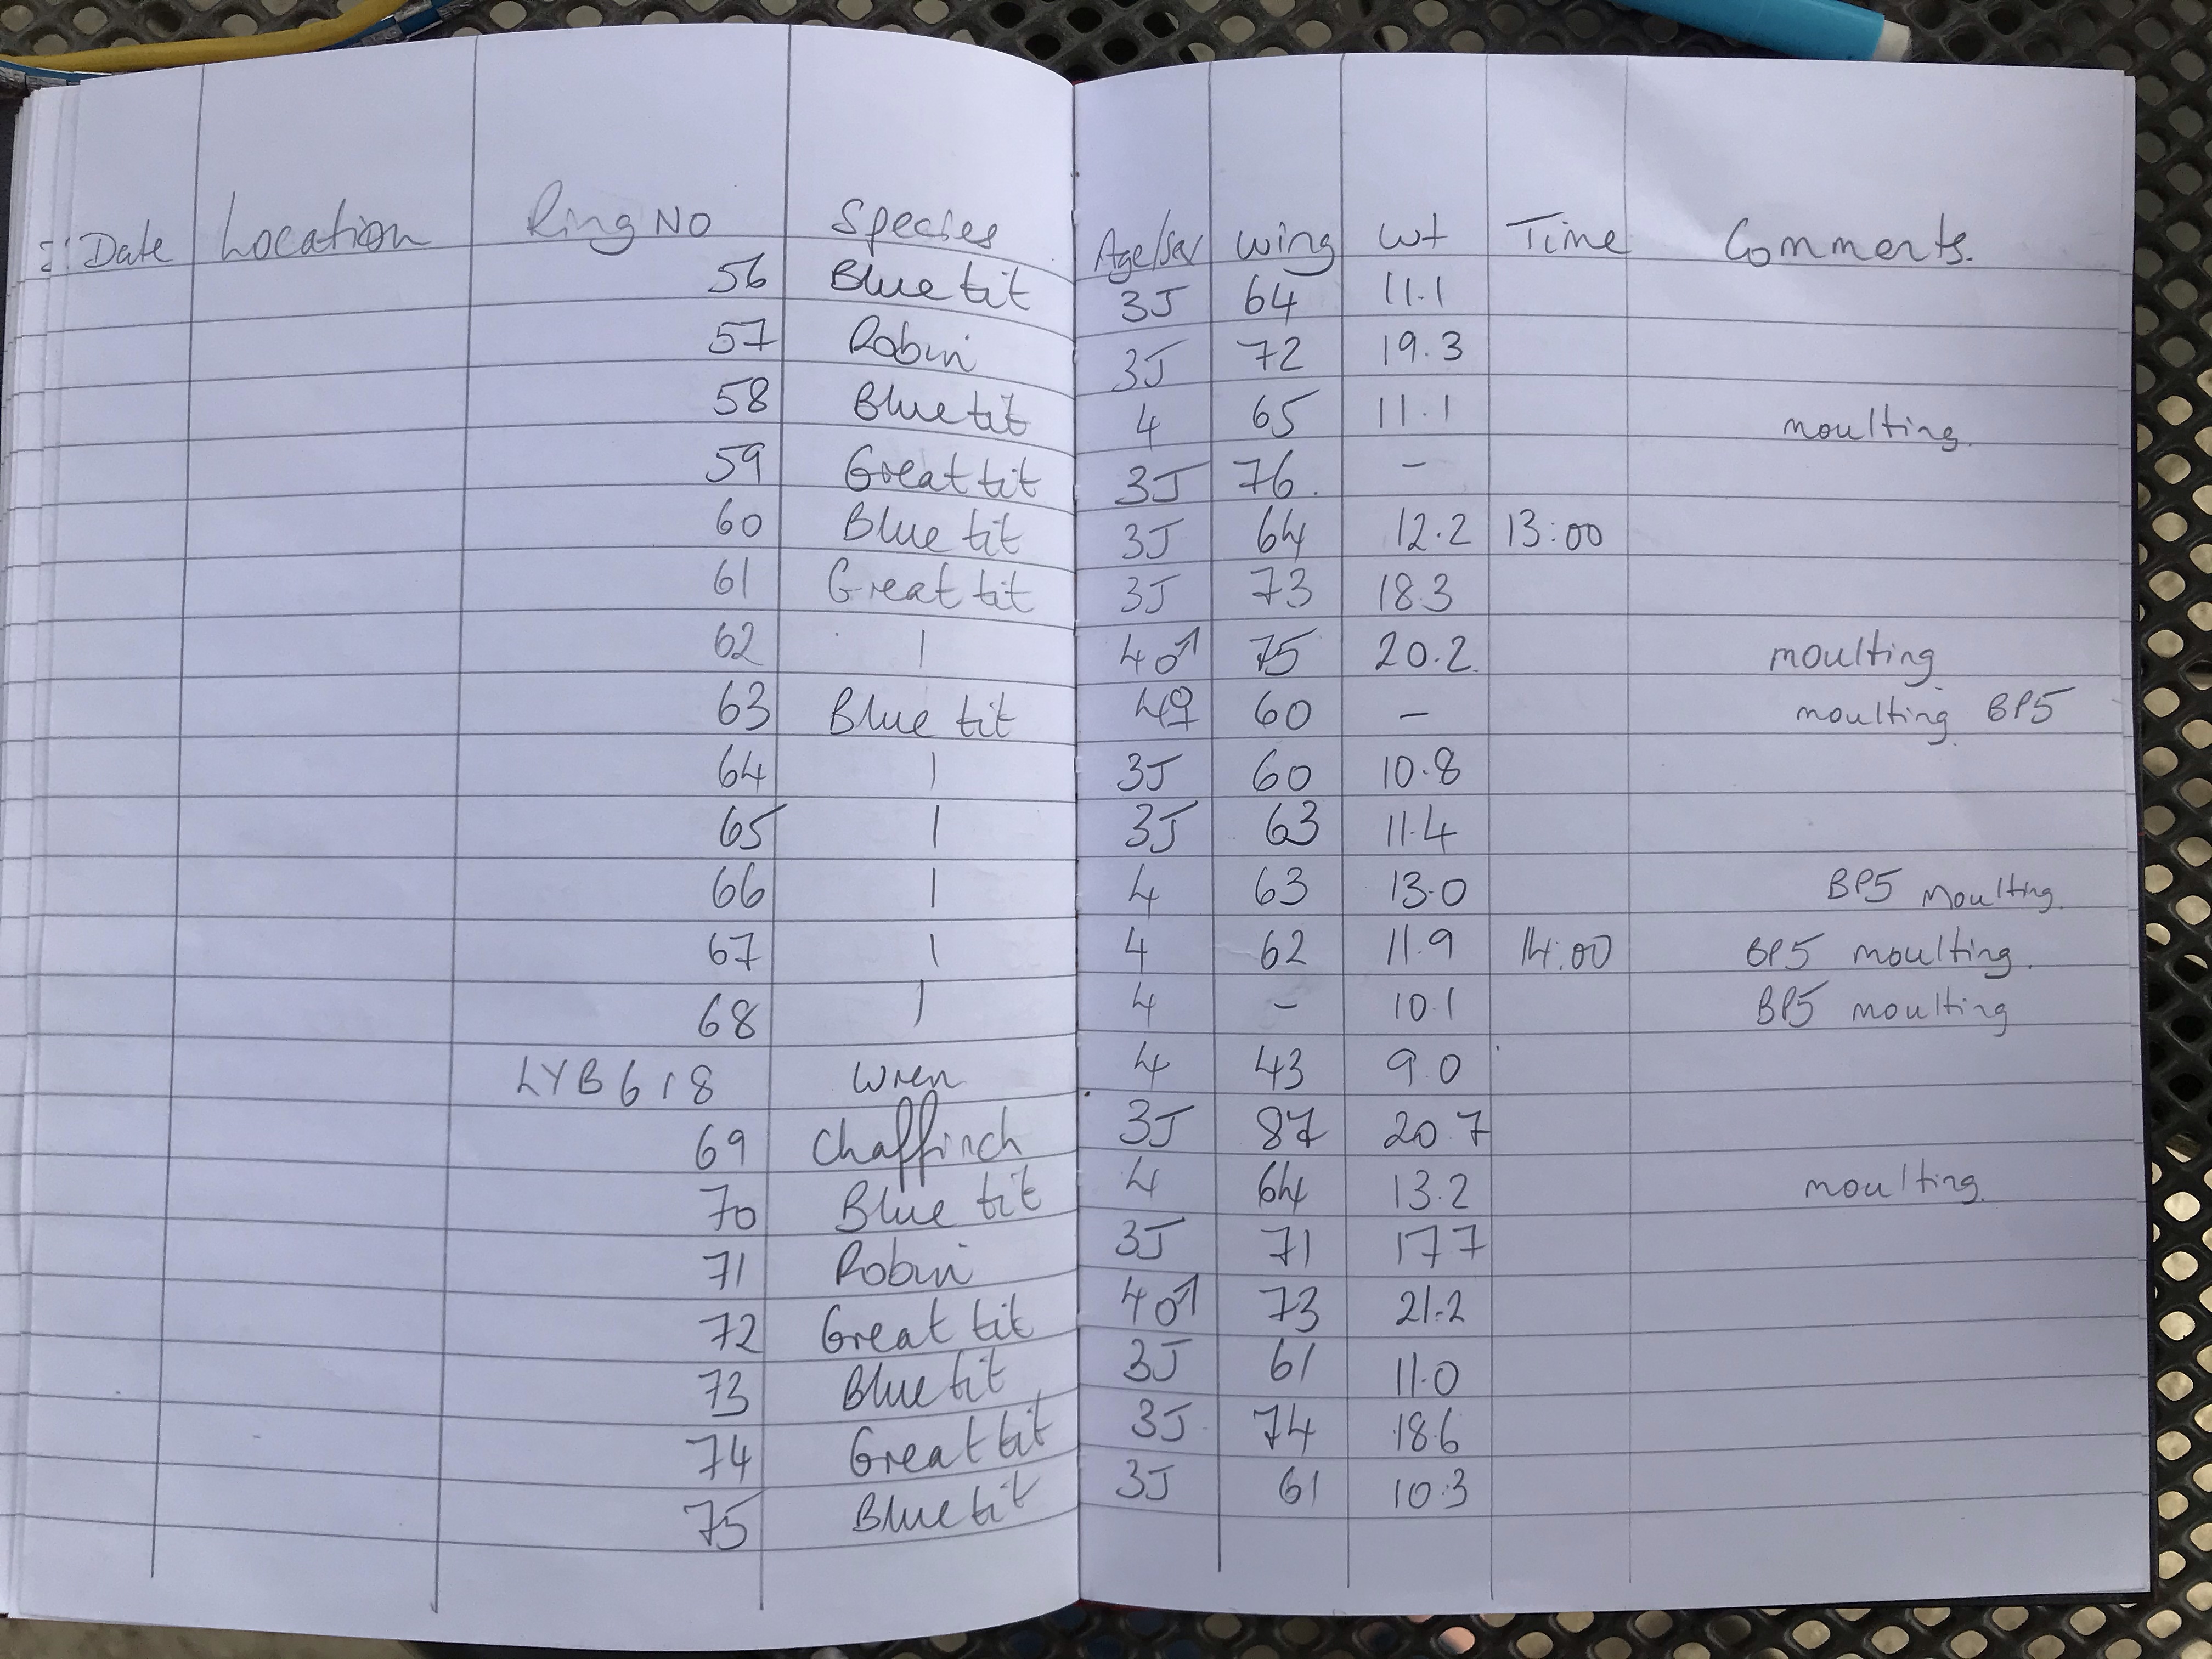 Date Location Ring No Species Age/Sex Wing Wt Time Comments.
56 Blue tit 3J 64 11.1
57 Robin 3J 72 19.3
58 Blue tit 4 65 11.1 moulting.
59 Great tit 3J 76. –
60 Blue tit 3J 64 12.2 13:00
61 Great tit 3J 73 18.3
62 | 4♂ 75 20.2. moulting
63 Blue tit 4♀ 60 – moulting BP5
64 | 3J 60 10.8
65 | 3J 63 11.4
66 | 4 63 13.0 BP5 Moulting.
67 | 4 62 11.9 14:00 BP5 moulting.
68 | 4 – 10.1 BP5 moulting
LYB618 Wren 4 43 9.0
69 Chaffinch 3J 87 20.7
70 Blue tit 4 64 13.2 moulting.
71 Robin 3J 71 17 7
72 Great tit 4♂ 73 21.2
73 Blue tit 3J 61 11.0
74 Great tit 3J 74 18.6
75 Blue tit 3J 61 10.3